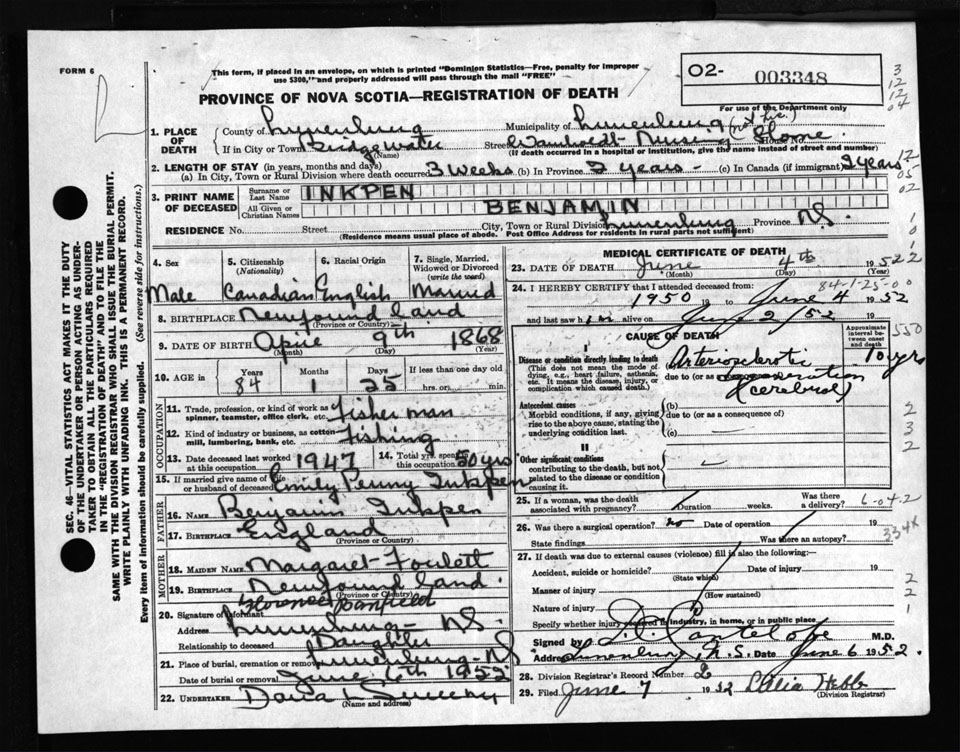 FORM 6
This form, if placed in an envelope, on which is printed "Dominion Statistics—Free, penalty for improper
use $300," and properly addressed will pass through the mail "FREE"
O2- 003348
PROVINCE OF NOVA SCOTIA—REGISTRATION OF DEATH
For use of the Department only
3
12
12
04
1. PLACE OF DEATH
County of Lunenburg Municipality of Lunenburg
If in City or Town Bridgewater (Name) Street Nursing Home House No.
(If death occurred in a hospital or institution, give the name instead of street and number)
2. LENGTH OF STAY (in years, months and days)
(a) In City, Town or Rural Division where death occurred 3 weeks (b) In Province 2 years (c) In Canada (if immigrant) 2 years
12
05
02
3. PRINT NAME OF DECEASED
Surname or Last Name INKPEN
All Given or Christian Names BENJAMIN
RESIDENCE No. Street City, Town or Rural Division Lunenburg Province N.S.
(Residence means usual place of abode. Post Office Address for residents in rural parts not sufficient)
4. Sex Male
5. Citizenship (Nationality) Canadian
6. Racial Origin English
7. Single, Married, Widowed or Divorced (write the word) Married
8. BIRTHPLACE Newfoundland
(Province or Country)
9. DATE OF BIRTH April 9th 1868
(Month) (Day) (Year)
10. AGE in Years 84 Months 1 Days 25 If less than one day old hrs. or min.
OCCUPATION
11. Trade, profession, or kind of work as spinner, teamster, office clerk, etc. Fisherman
12. Kind of industry or business, as cotton mill, lumbering, bank, etc. Fishing
13. Date deceased last worked at this occupation 1947
14. Total yrs. spent in this occupation 50 yrs
15. If married give name of wife or husband of deceased Emily Penny Inkpen
FATHER
16. NAME Benjamin Inkpen
17. BIRTHPLACE England
(Province or Country)
MOTHER
18. MAIDEN NAME Margaret
19. BIRTHPLACE Newfoundland
(Province or Country)
20. Signature of informant Florence Banfield
Address Lunenburg - N.S.
Relationship to deceased Daughter
21. Place of burial, cremation or removal Lunenburg - N.S
Date of burial or removal June 6th 1952
22. UNDERTAKER
(Name and address)
MEDICAL CERTIFICATE OF DEATH
23. DATE OF DEATH June 4th 1952
(Month) (Day) (Year)
24. I HEREBY CERTIFY that I attended deceased from: 84-1-25-00
1950 19 to June 4 1952
and last saw him alive on June 2/52
CAUSE OF DEATH
Approximate interval between onset and death
550
I
Disease or condition directly leading to death
(This does not mean the mode of dying, e.g., heart failure, asthenia, etc. It means the disease, injury, or complication which caused death.)
(a) Arteriosclerotic
due to (or as
(cerebral)
10 yrs
Antecedent causes
Morbid conditions, if any, giving rise to the above cause, stating the underlying condition last.
(b)
due to (or as consequence of)
(c)
II
Other significant conditions
contributing to the death, but not related to the disease or condition causing it.
2
3
2
25. If a woman, was the death associated with pregnancy? Duration weeks. Was there a delivery? 6-04-2
26. Was there a surgical operation? no Date of operation 19
State findings Was there an autopsy?
334X
27. If death was due to external causes (violence) fill in also the following:—
Accident, suicide or homicide? Date of injury 19
(State which)
Manner of injury
(How sustained)
Nature of injury
Specify whether injury occurred in industry, in home, or in public place
2
2
1
Signed by M.D.
Address Lunenburg, N.S. Date June 6 1952.
28. Division Registrar's Record Number 2
29. Filed June 7 1952 Hebb
(Division Registrar)
SEC. 46—VITAL STATISTICS ACT MAKES IT THE DUTY
OF THE UNDERTAKER OR PERSON ACTING AS UNDERTAKER
TO OBTAIN ALL THE PARTICULARS REQUIRED
IN THE "REGISTRATION OF DEATH" AND TO FILE THE
SAME WITH THE DIVISION REGISTRAR WHO SHALL ISSUE THE BURIAL PERMIT.
WRITE PLAINLY WITH UNFADING INK. THIS IS A PERMANENT RECORD.
Every item of information should be carefully supplied. (See reverse side for instructions.)